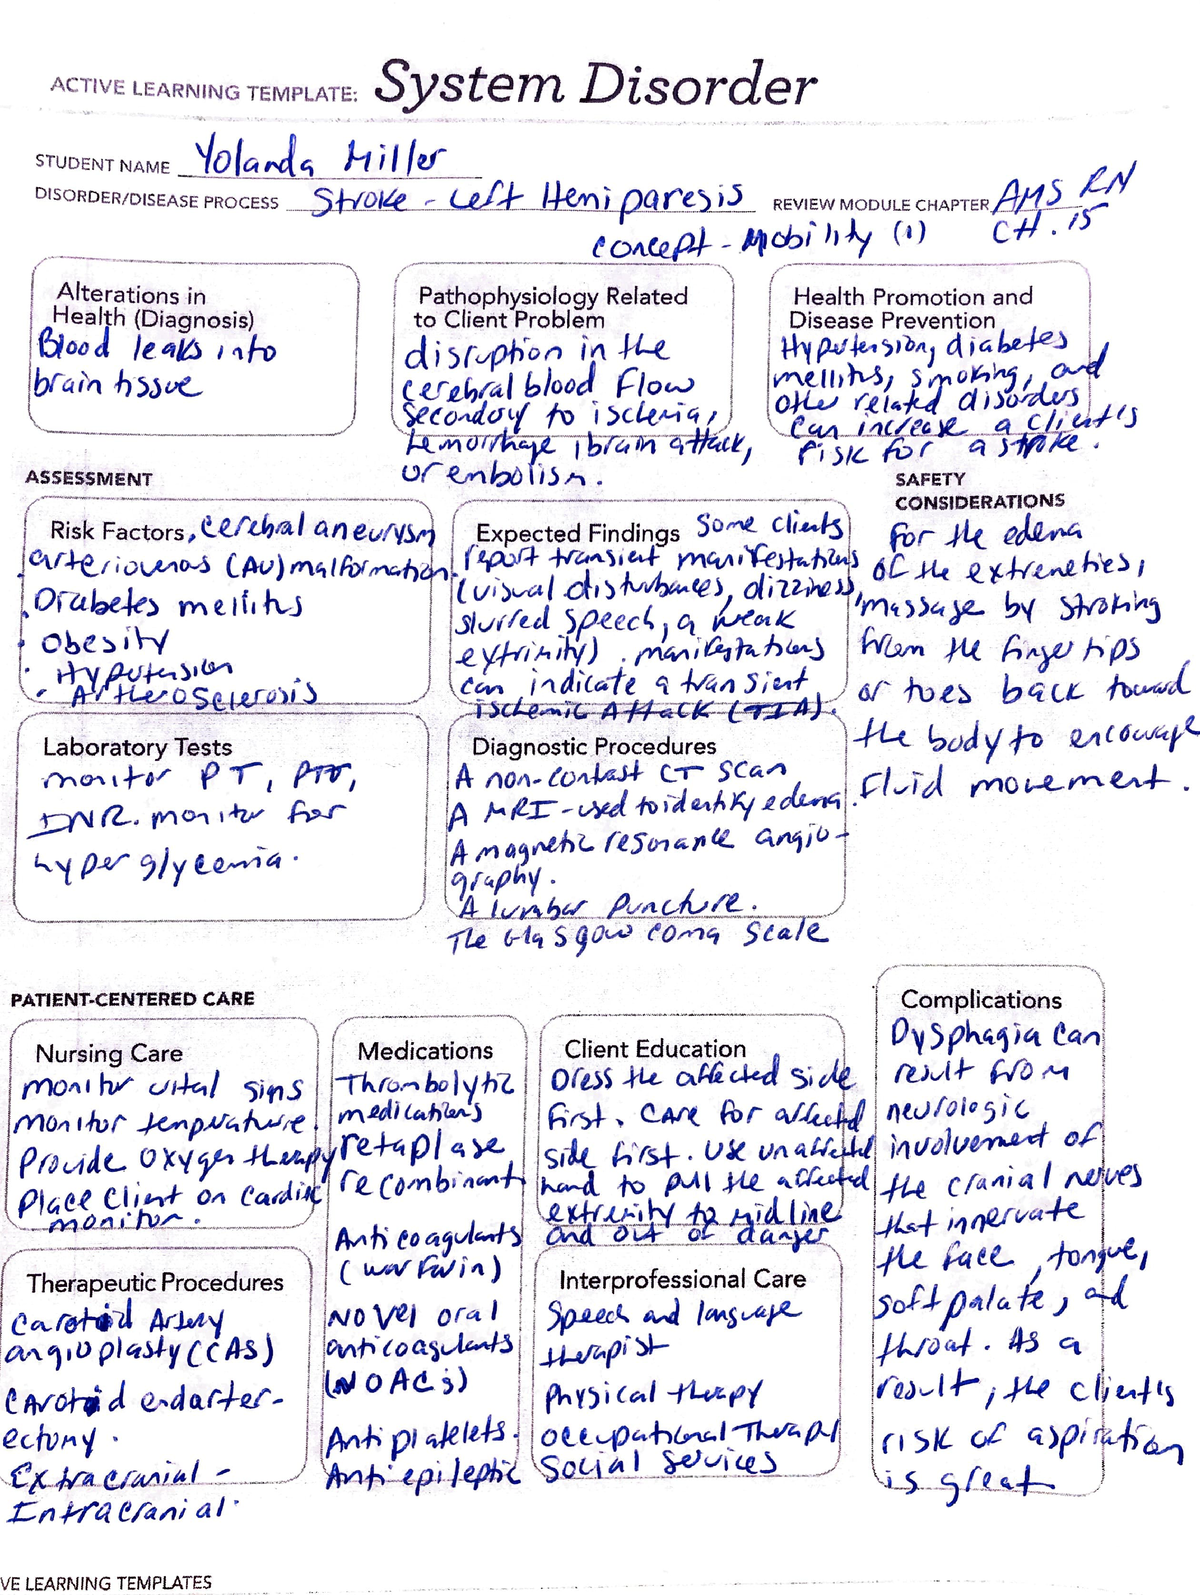 ACTIVE LEARNING TEMPLATE: System Disorder
STUDENT NAME Yolanda Miller
DISORDER/DISEASE PROCESS Stroke - Left Hemiparesis REVIEW MODULE CHAPTER AMS RN
CH. 15
concept - Mobility (1)
Alterations in
Health (Diagnosis)
Blood leaks into
brain tissue
Pathophysiology Related
to Client Problem
disruption in the
cerebral blood Flow
secondary to ischemia,
hemorrhage, brain attack,
or embolism.
Health Promotion and
Disease Prevention
Hypertension, diabetes
mellitus, smoking, and
other related disorders
can increase a client's
risk for a stroke.
ASSESSMENT
SAFETY
CONSIDERATIONS
For the edema
of the extremeties,
massage by stroking
from the fingertips
or toes back toward
the body to encourage
fluid movement.
Risk Factors, cerebral aneurysm
. arteriovenous (AV) malformation.
. Diabetes mellitus
. Obesity
. Hypertension
. Artherosclerosis
Expected Findings Some clients
report transient manifestations
(visual disturbances, dizziness,
slurred speech, a weak
extrimity). manifestations
can indicate a transient
ischemic Attack (TIA).
Laboratory Tests
monitor PT, PTT,
INR. monitor for
hyperglycemia.
Diagnostic Procedures
A non-contrast CT scan
A MRI - used to identify edema.
A magnetic resonance angio-
graphy.
A lumbar puncture.
The Glasgow coma scale
PATIENT-CENTERED CARE
Nursing Care
monitor vital signs
monitor temperature.
Provide oxygen therapy
Place Client on Cardiac
monitor.
Medications
Thrombolytic
medications
retaplase
recombinant
Anticoagulants
(warfarin)
Novel oral
anticoagulants
(NOACs)
Antiplatelets.
Antiepileptic
Client Education
Dress the affected side
first. Care for affected
side first. Use unaffected
hand to pull the affected
extremity to midline
and out of danger
Complications
Dysphagia can
result from
neurologic
involvement of
the cranial nerves
that innervate
the face, tongue,
soft palate, and
throat. As a
result, the client's
risk of aspiration
is great
Therapeutic Procedures
Carotid Artery
angioplasty (CAS)
Carotid endarter-
ectomy.
Extracranial -
Intracranial.
Interprofessional Care
Speech and language
therapist
Physical therapy
Occupational Therapy
Social Services
VE LEARNING TEMPLATES